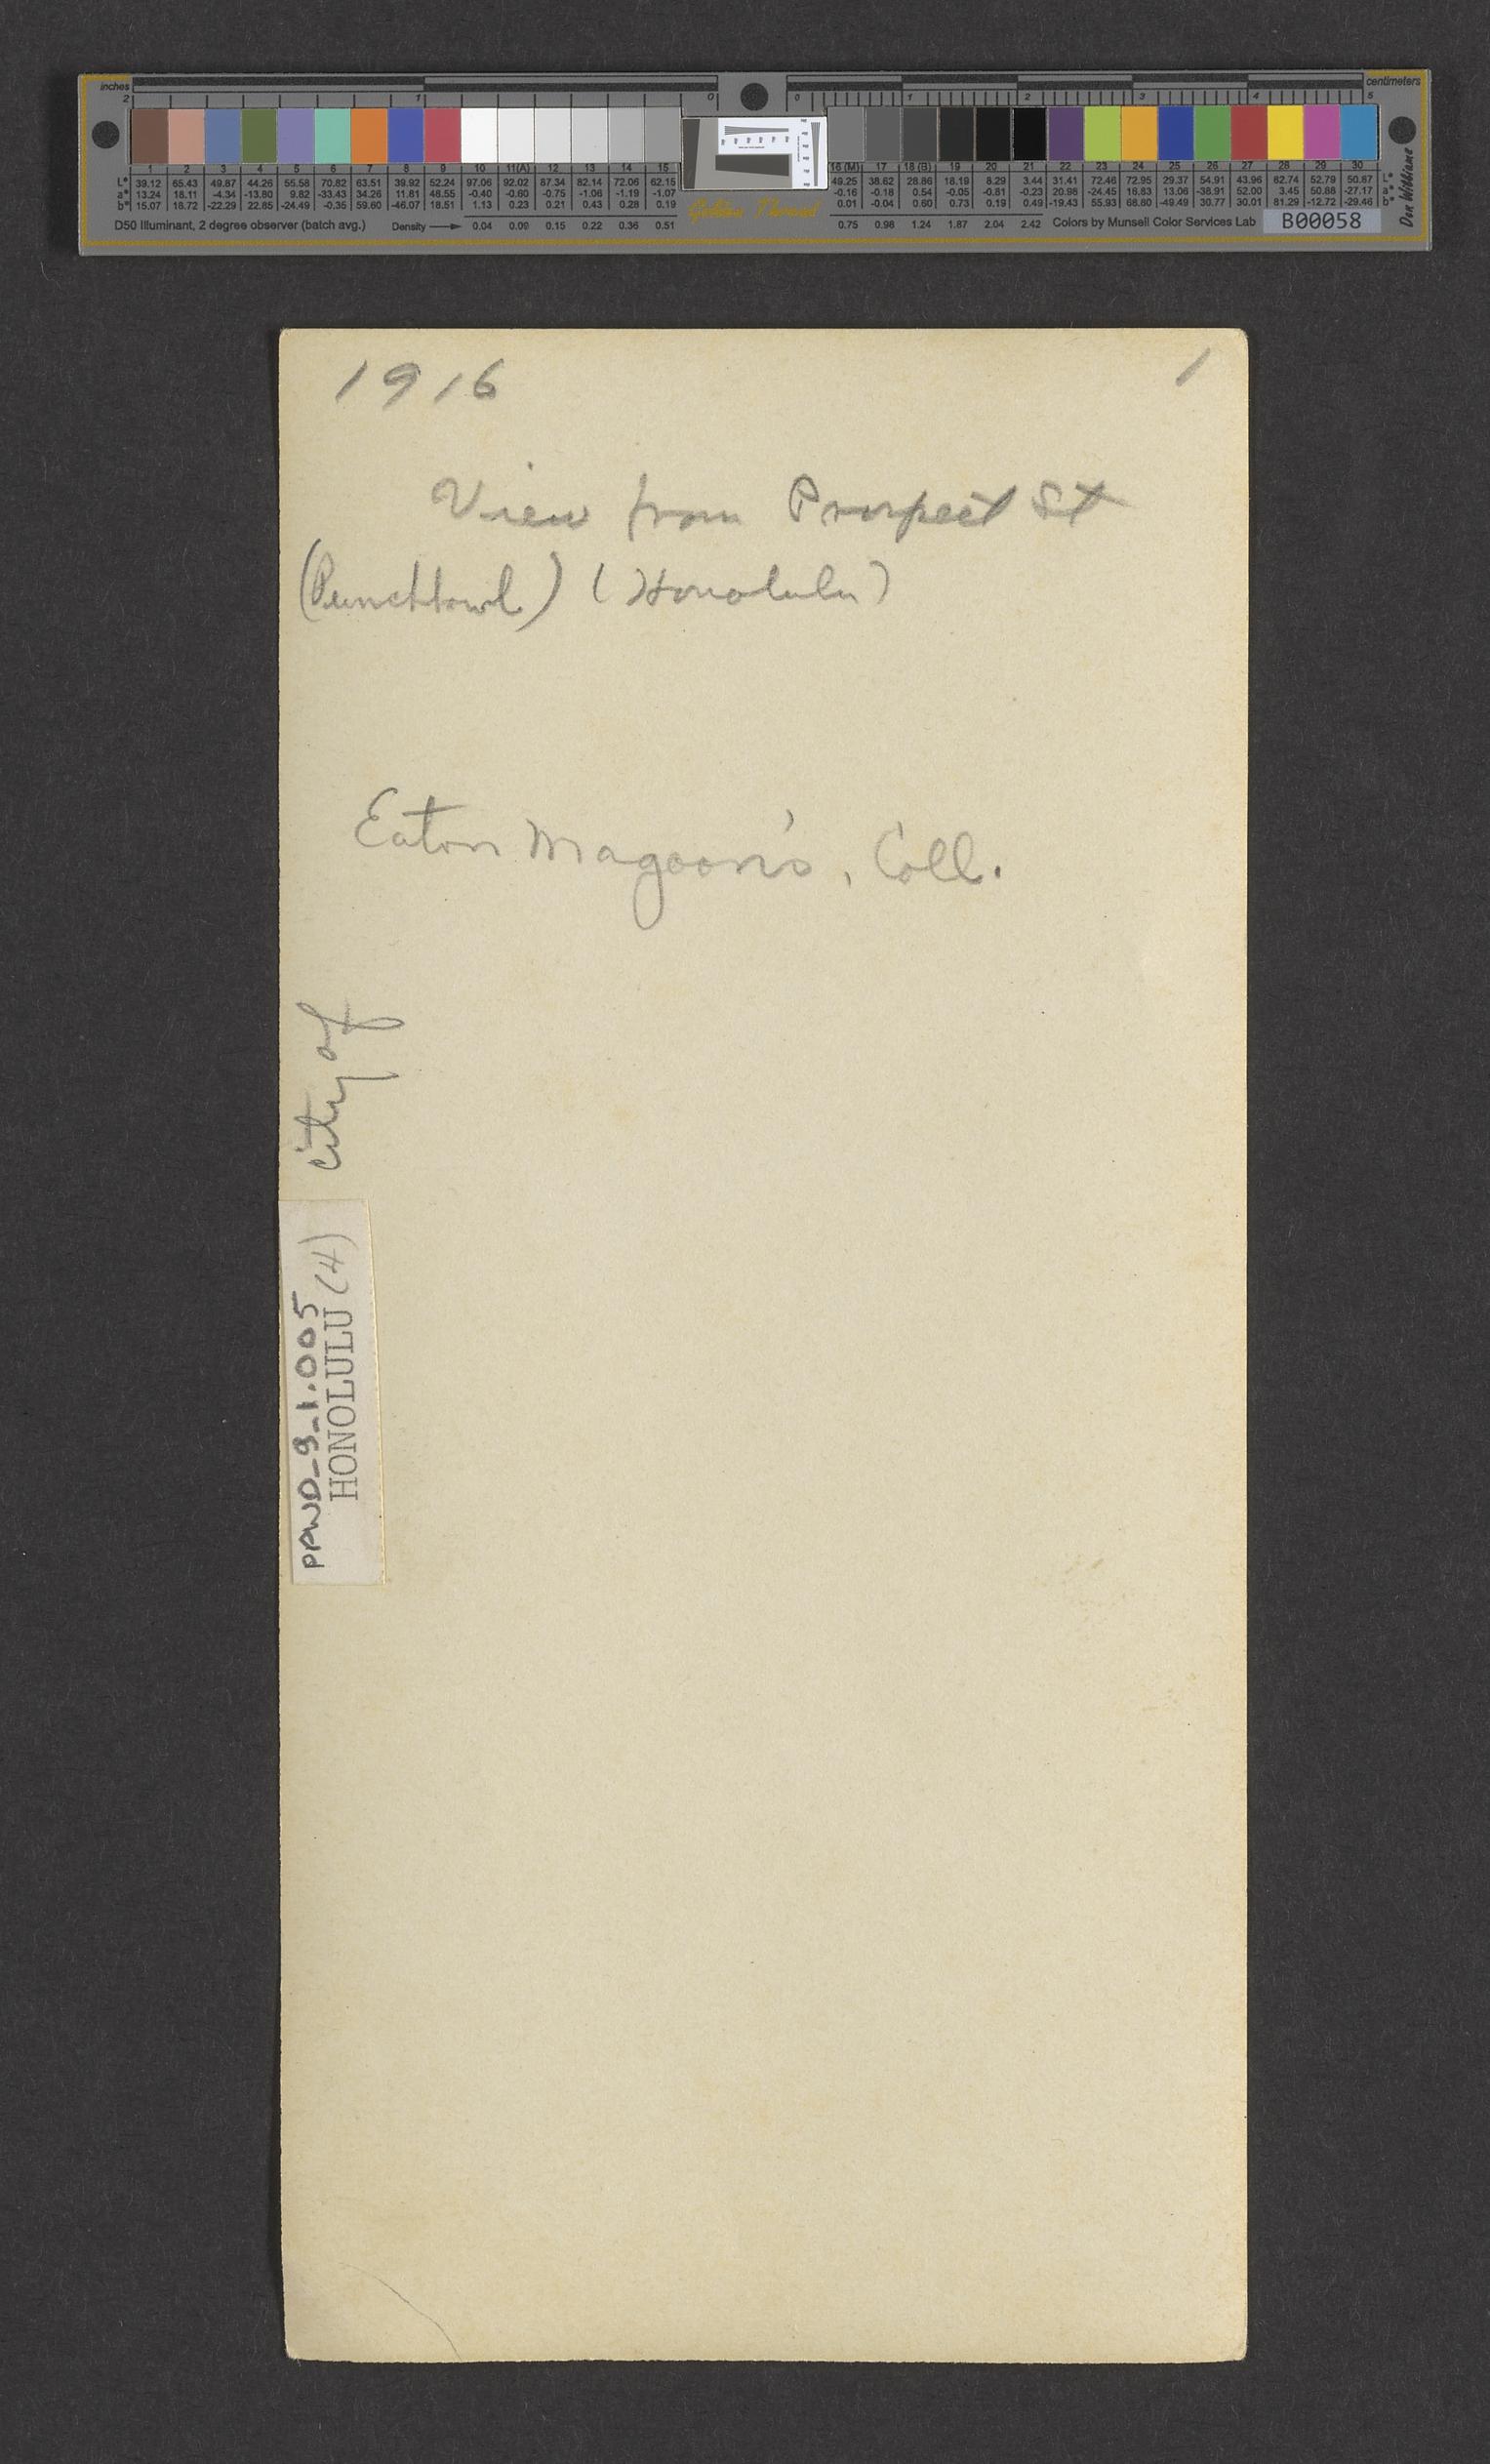 inches
centimeters
2 1 0 0 1 2 3 4 5
1 2 3 4 5 6 7 8 9 10 11(A) 12 13 14 15 16 (M) 17 18 (B) 19 20 21 22 23 24 25 26 27 28 29 30
L* 39.12 65.43 49.87 44.26 55.58 70.82 63.51 39.92 52.24 97.06 92.02 87.34 82.14 72.06 62.15 49.25 38.62 28.86 18.19 8.29 3.44 31.41 72.46 72.95 29.37 54.91 43.96 82.74 52.79 50.87 L*
a* 13.24 18.11 -4.34 -13.80 9.82 -33.43 34.26 11.81 48.55 -0.40 -0.60 -0.75 -1.06 -1.19 -1.07 -0.16 -0.18 0.54 -0.05 -0.81 -0.23 20.98 -24.45 16.83 13.06 -38.91 52.00 3.45 50.88 -27.17 a*
b* 15.07 18.72 -22.29 22.85 -24.49 -0.35 59.60 -46.07 18.51 1.13 0.23 0.21 0.43 0.28 0.19 0.01 -0.04 0.60 0.73 0.19 0.49 -19.43 55.93 68.80 -49.49 30.77 30.01 81.29 -12.72 -29.46 b*
D50 Illuminant, 2 degree observer (batch avg.) Density 0.04 0.09 0.15 0.22 0.36 0.51 Golden Thread 0.75 0.98 1.24 1.67 2.04 2.42 Colors by Munsell Color Services Lab B00058
Don Williams
1916 1
View from Prospect St
(Punchbowl) (Honolulu)
Eaton Magoon's, Coll.
city of
PPWD_9_1.005
HONOLULU (4)